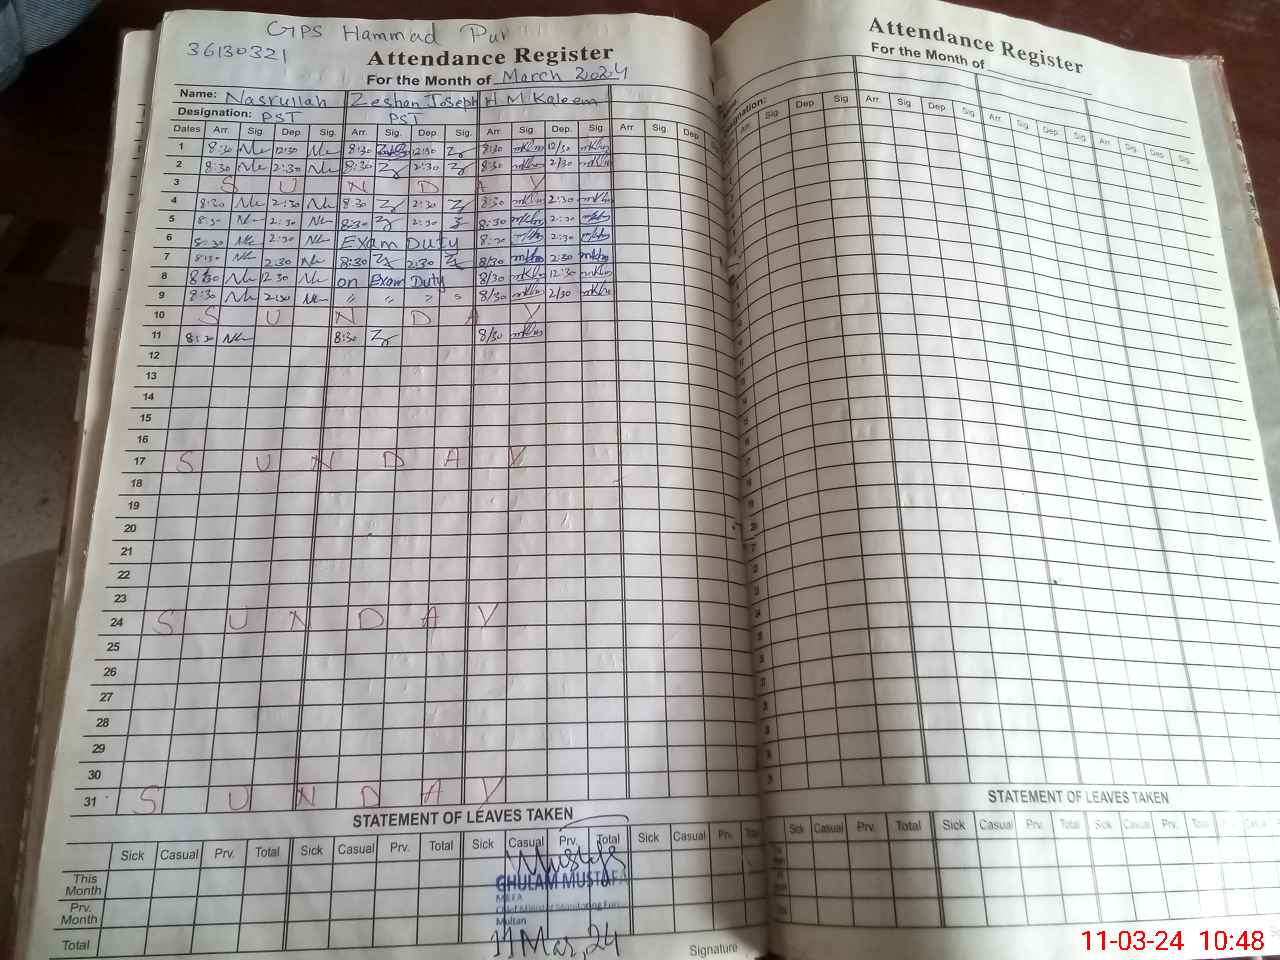 GPS Hammad Pur
36130321
Attendance Register
For the Month of March 2024
Name: Nasrullah Zeshan Joseph H M Kaleem
Designation: PST PST
Dates Arr. Sig. Dep. Sig. Arr. Sig. Dep. Sig. Arr. Sig. Dep. Sig. Arr. Sig. Dep.
1 8:30 12:30 8:30 12:30 8/30 12/30
2 8:30 2:30 8:30 2:30 8:30 2/30
3 S U N D A Y
4 8:30 2:30 8:30 2:30 8:30 2:30
5 8:30 2:30 8:30 2:30 8:30 2:30
6 8:30 2:30 Exam Duty 8:30 2:30
7 8:30 2:30 8:30 2:30 8/30 2:30
8 8:30 12:30 on Exam Duty 8/30 12:30
9 8:30 2:30 " " " " 8/30 2/30
10 S U N D A Y
11 8:30 8:30 8/30
12
13
14
15
16
17 S U N D A Y
18
19
20
21
22
23
24 S U N D A Y
25
26
27
28
29
30
31 S U N D A Y
STATEMENT OF LEAVES TAKEN
Sick Casual Prv. Total Sick Casual Prv. Total Sick Casual Prv. Total Sick Casual Prv. Total
This Month
Prv. Month
Total
Mustafa
GHULAM MUSTAFA
MEA
Chief Minister Monitoring Force
Multan
11 Mar, 24
Signature
Attendance Register
For the Month of
Designation:
Arr. Sig. Dep. Sig. Arr. Sig. Dep. Sig. Arr. Sig. Dep. Sig. Arr. Sig. Dep. Sig.
STATEMENT OF LEAVES TAKEN
Sick Casual Prv. Total Sick Casual Prv. Total Sick Casual Prv. Total
11-03-24 10:48